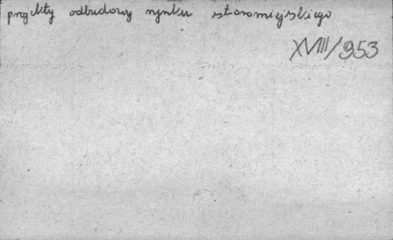 projekty odbudowy rynku staromiejskiego
XVIII/953